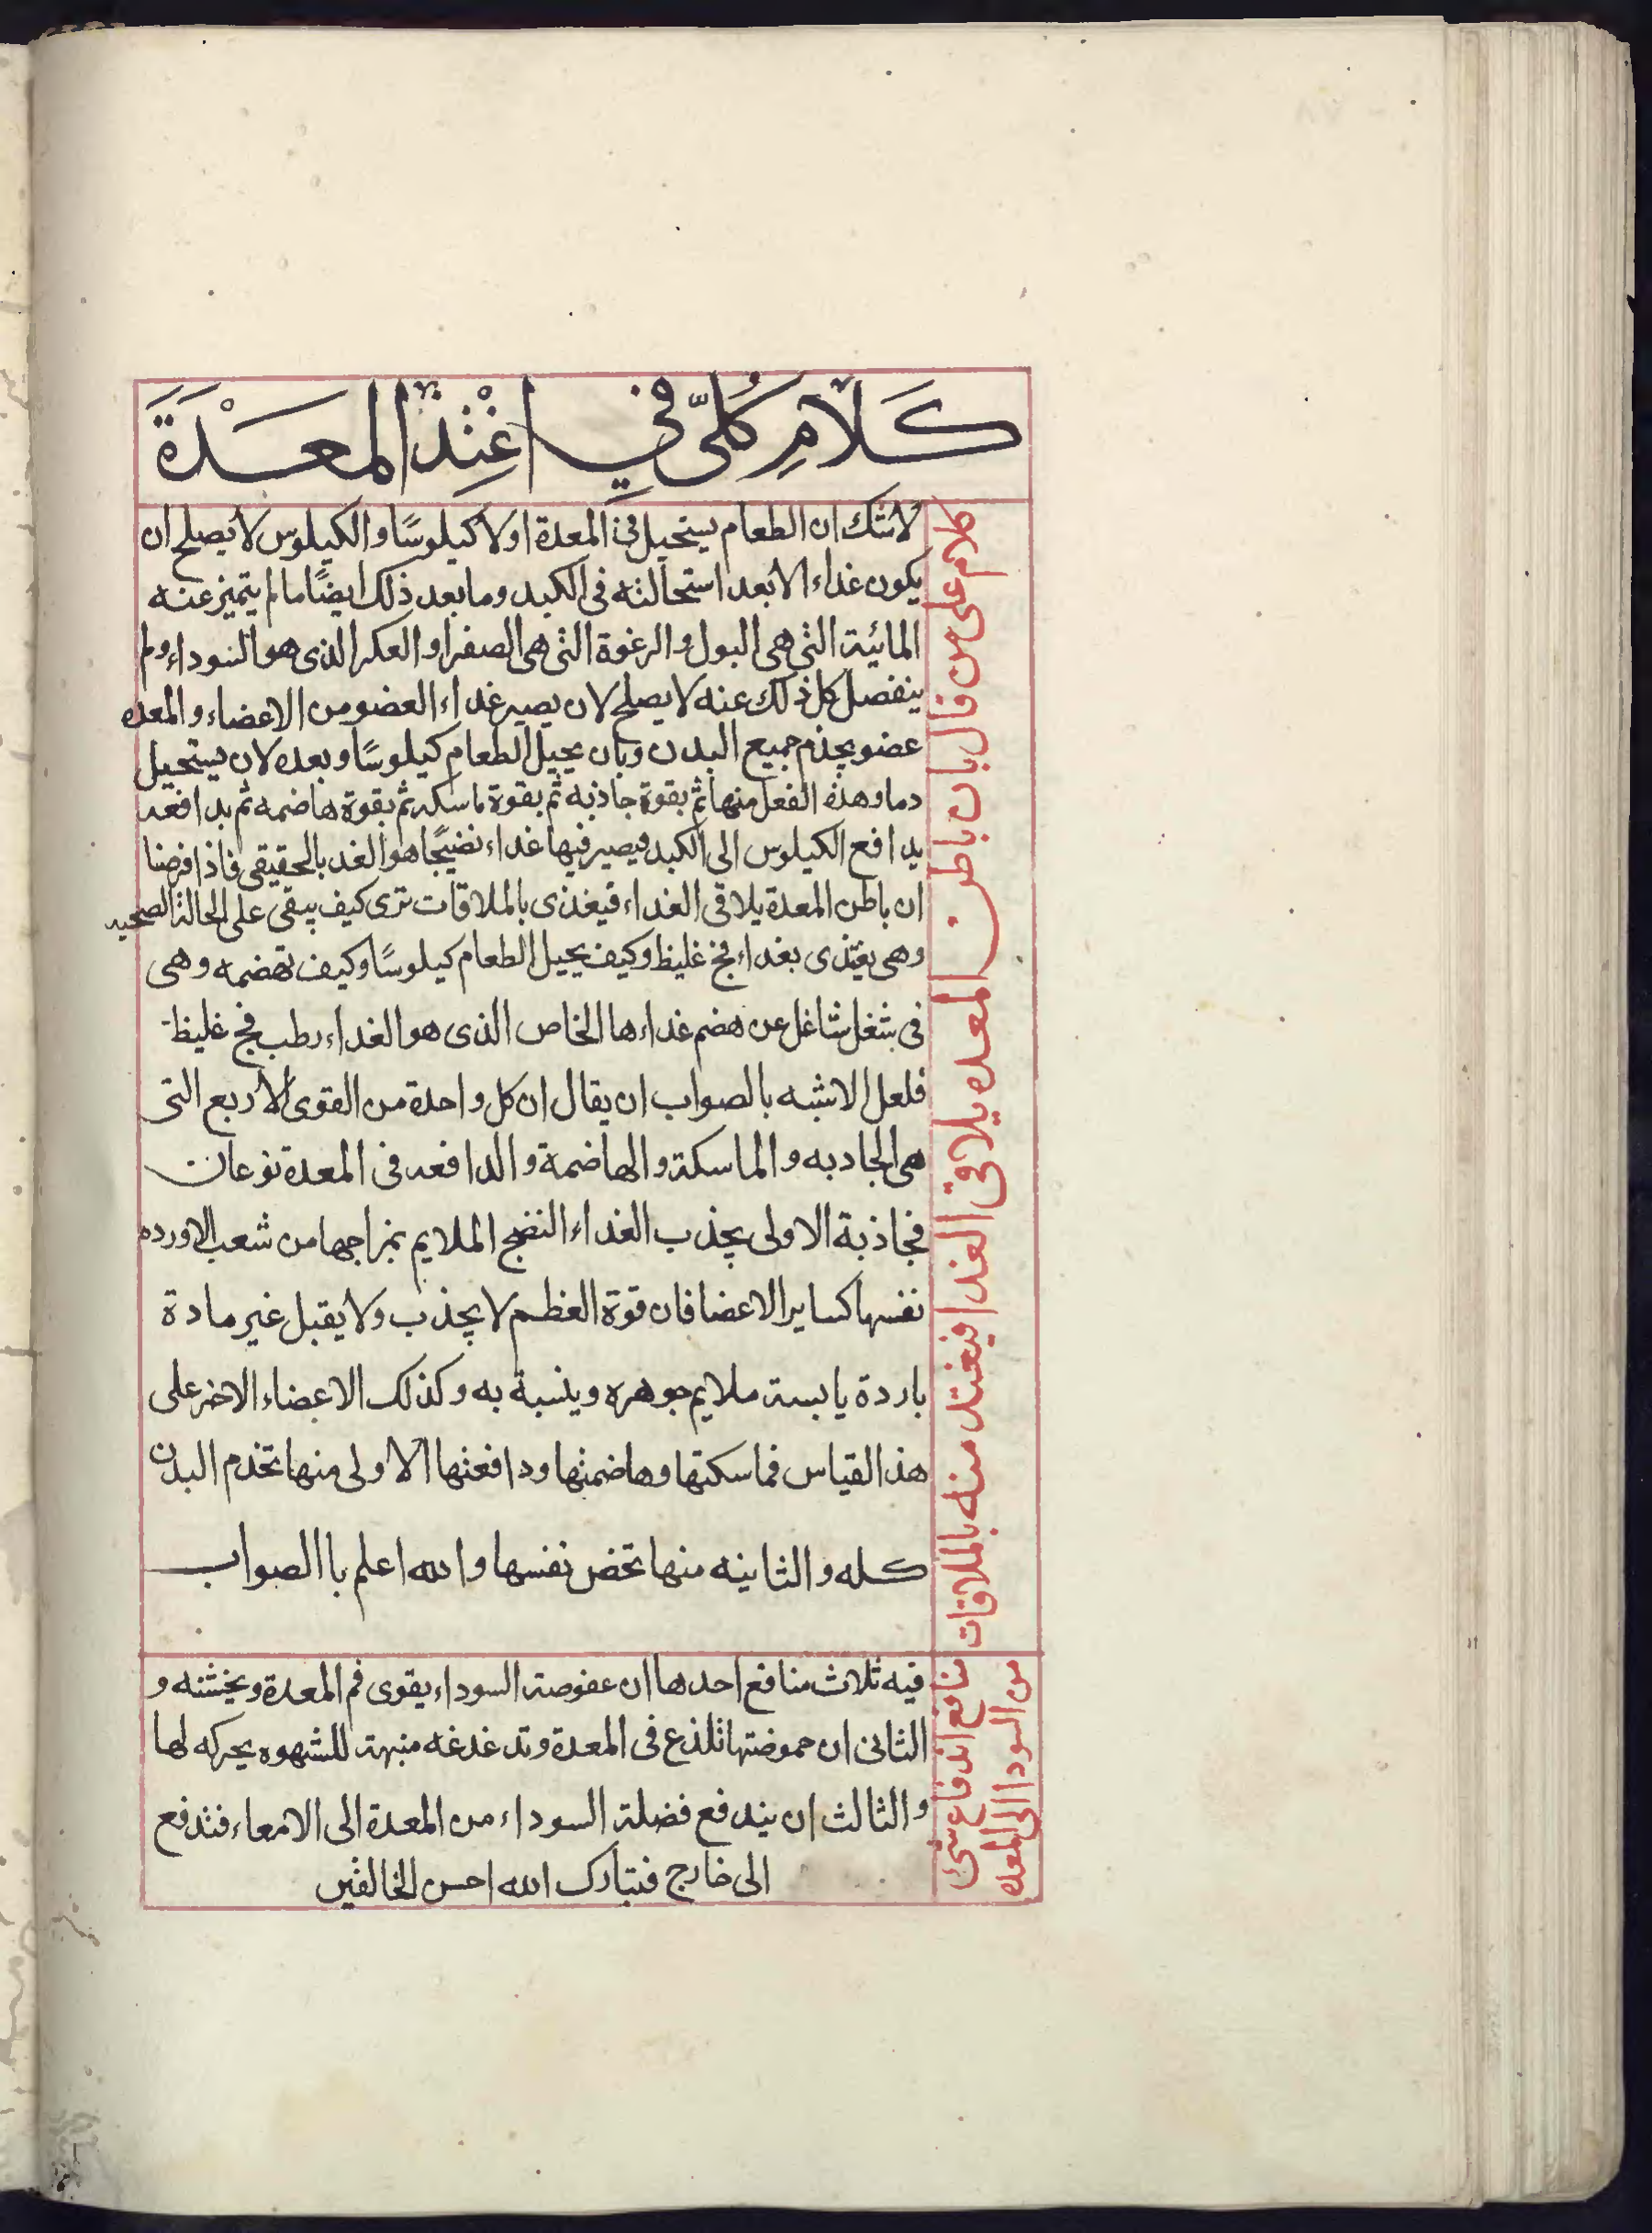 كَلَامٌ كُلِّيّ فِي اغْتِذَا المعَدَةَ
كلام على من قال بان باطن المعده يلاقى الغدا فيغتد منه بالملاقات
لاشك ان الطعام يستحيل فى المعدة اولا كيلوسًا والكيلوس لا يصلح ان
يكون غداء الا بعد استحالته فى الكبد وما بعد ذلك ايضًا مالم يتميز عنه
المائية التى هى البول والرغوة التى هى الصفرا والعكر الذى هو السوداء ولم
ينفصل كل ذلك عنه لا يصلح لان يصير غداء العضو من الاعضاء والمعده
عضو يخدم جميع البدن وبان يحيل الطعام كيلوسًا وبعده لان يستحيل
دما وهذه الفعل منها ثم بقوة جاذبه ثم بقوة ماسكه ثم بقوة هاضمه ثم بدافعه
يدافع الكيلوس الى الكبد فيصير فيها غداء نضيجًا هو الغد بالحقيقى فاذا فرضنا
ان باطن المعدة يلاقى الغداء فيغذى بالملاقات ترى كيف يبقى على الحالة الصحيه
وهى يغتذى بغداء فج غليظ وكيف يحيل الطعام كيلوسًا وكيف تهضمه وهى
فى شغل شاغل عن هضم غداءها الخاص الذى هو الغداء رطب فج غليظ
فلعل الاشبه بالصواب ان يقال ان كل واحدة من القوى الاربع التى
هى الجادبه والماسكة والهاضمة والدافعه فى المعدة نوعان
فجاذبة الاولى يجذب الغداء النضج الملايم بمزاجها من شعب الاورده
نفسها كساير الاعضا فان قوة العظم لا يجذب ولا يقبل غير مادة
باردة يابسة ملايم جوهره وينسبة به وكذلك الاعضاء الاخر على
هذا القياس فماسكتها وهاضمتها ودافعتها الاولى منها تخدم البدن
كله والثانيه منها تخص نفسها والله اعلم باالصواب
منافع اندفاع شئ
من السودا الى المعده
فيه ثلاث منافع احدها ان عفوصة السوداء يقوى فم المعدة ويخشنه و
الثانى ان حموضتها تلذع فى المعدة وتدغدغه منبهة للشهوه يحركه لها
والثالث ان يندفع فضلة السوداء من المعدة الى الامعاء فتدفع
الى خارج فتبارك الله احسن الخالقين